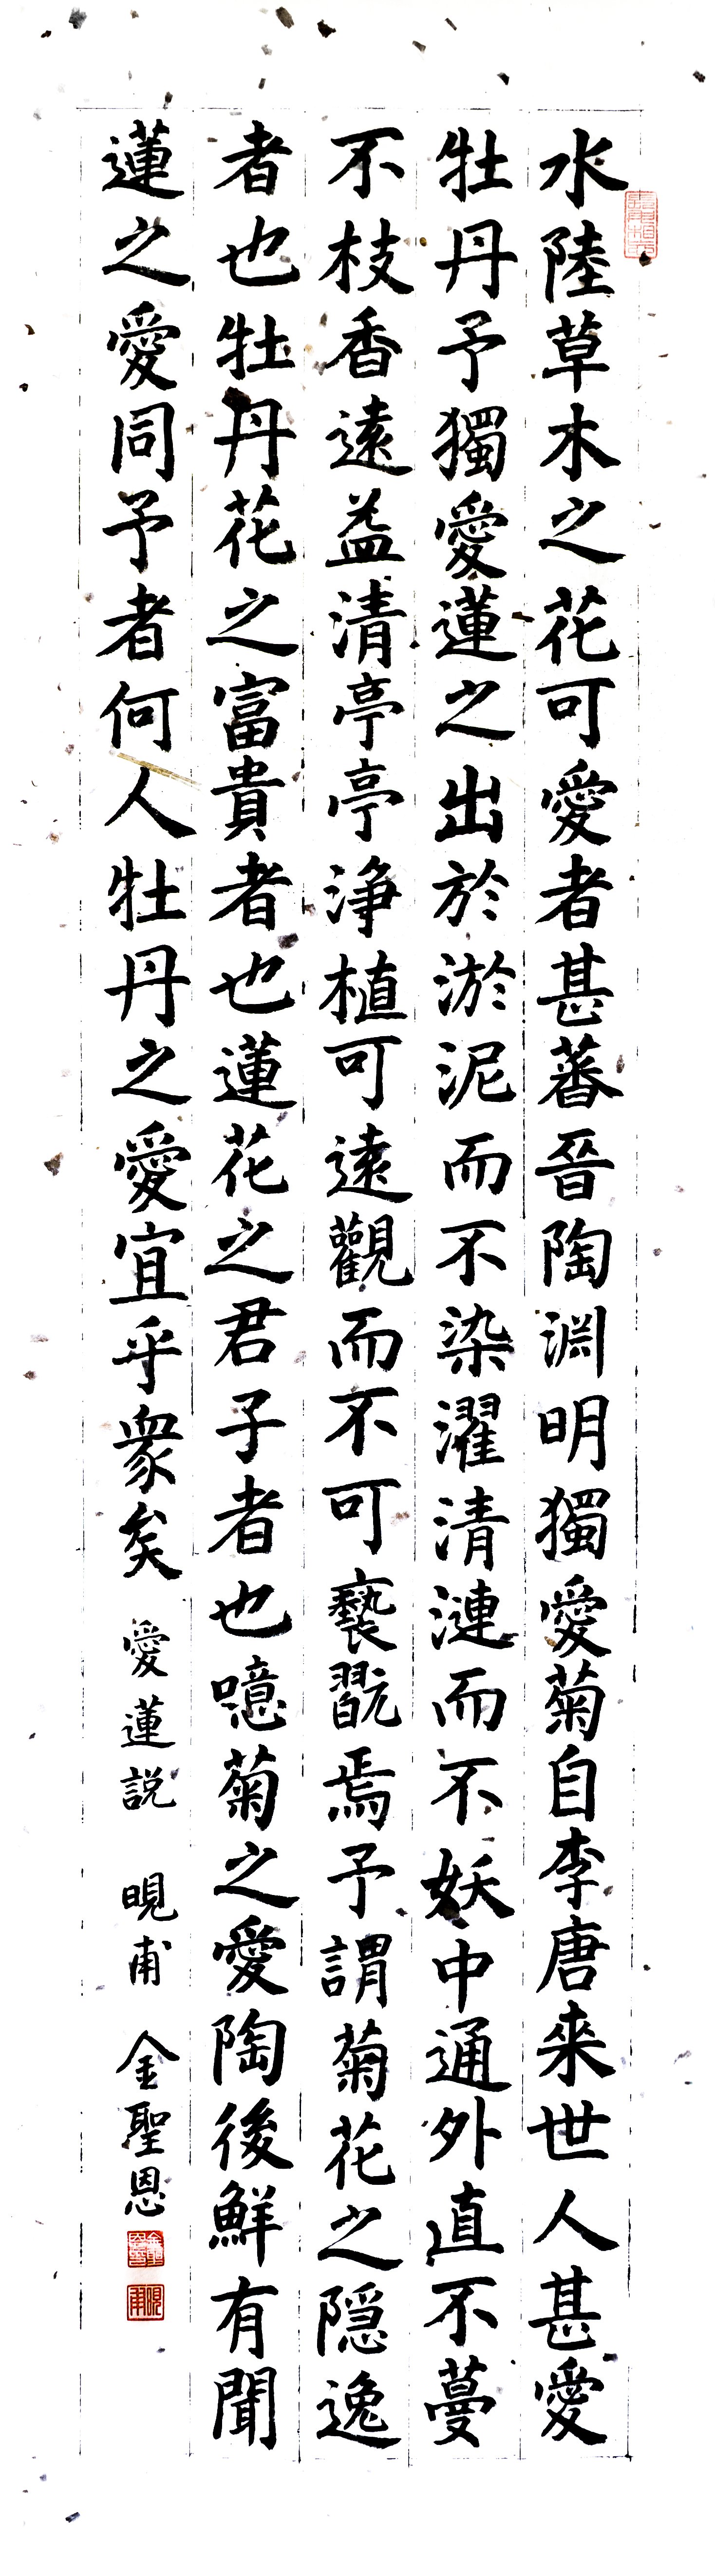 水陸草木之花可愛者甚蕃晉陶淵明獨愛菊自李唐来世人甚愛
牡丹予獨愛蓮之出於淤泥而不染濯清漣而不妖中通外直不蔓
不枝香遠益清亭亭浄植可遠觀而不可褻翫焉予謂菊花之隠逸
者也牡丹花之富貴者也蓮花之君子者也噫菊之愛陶後鮮有聞
蓮之愛同予者何人牡丹之愛宜乎衆矣 愛蓮説 晛甫 金聖恩